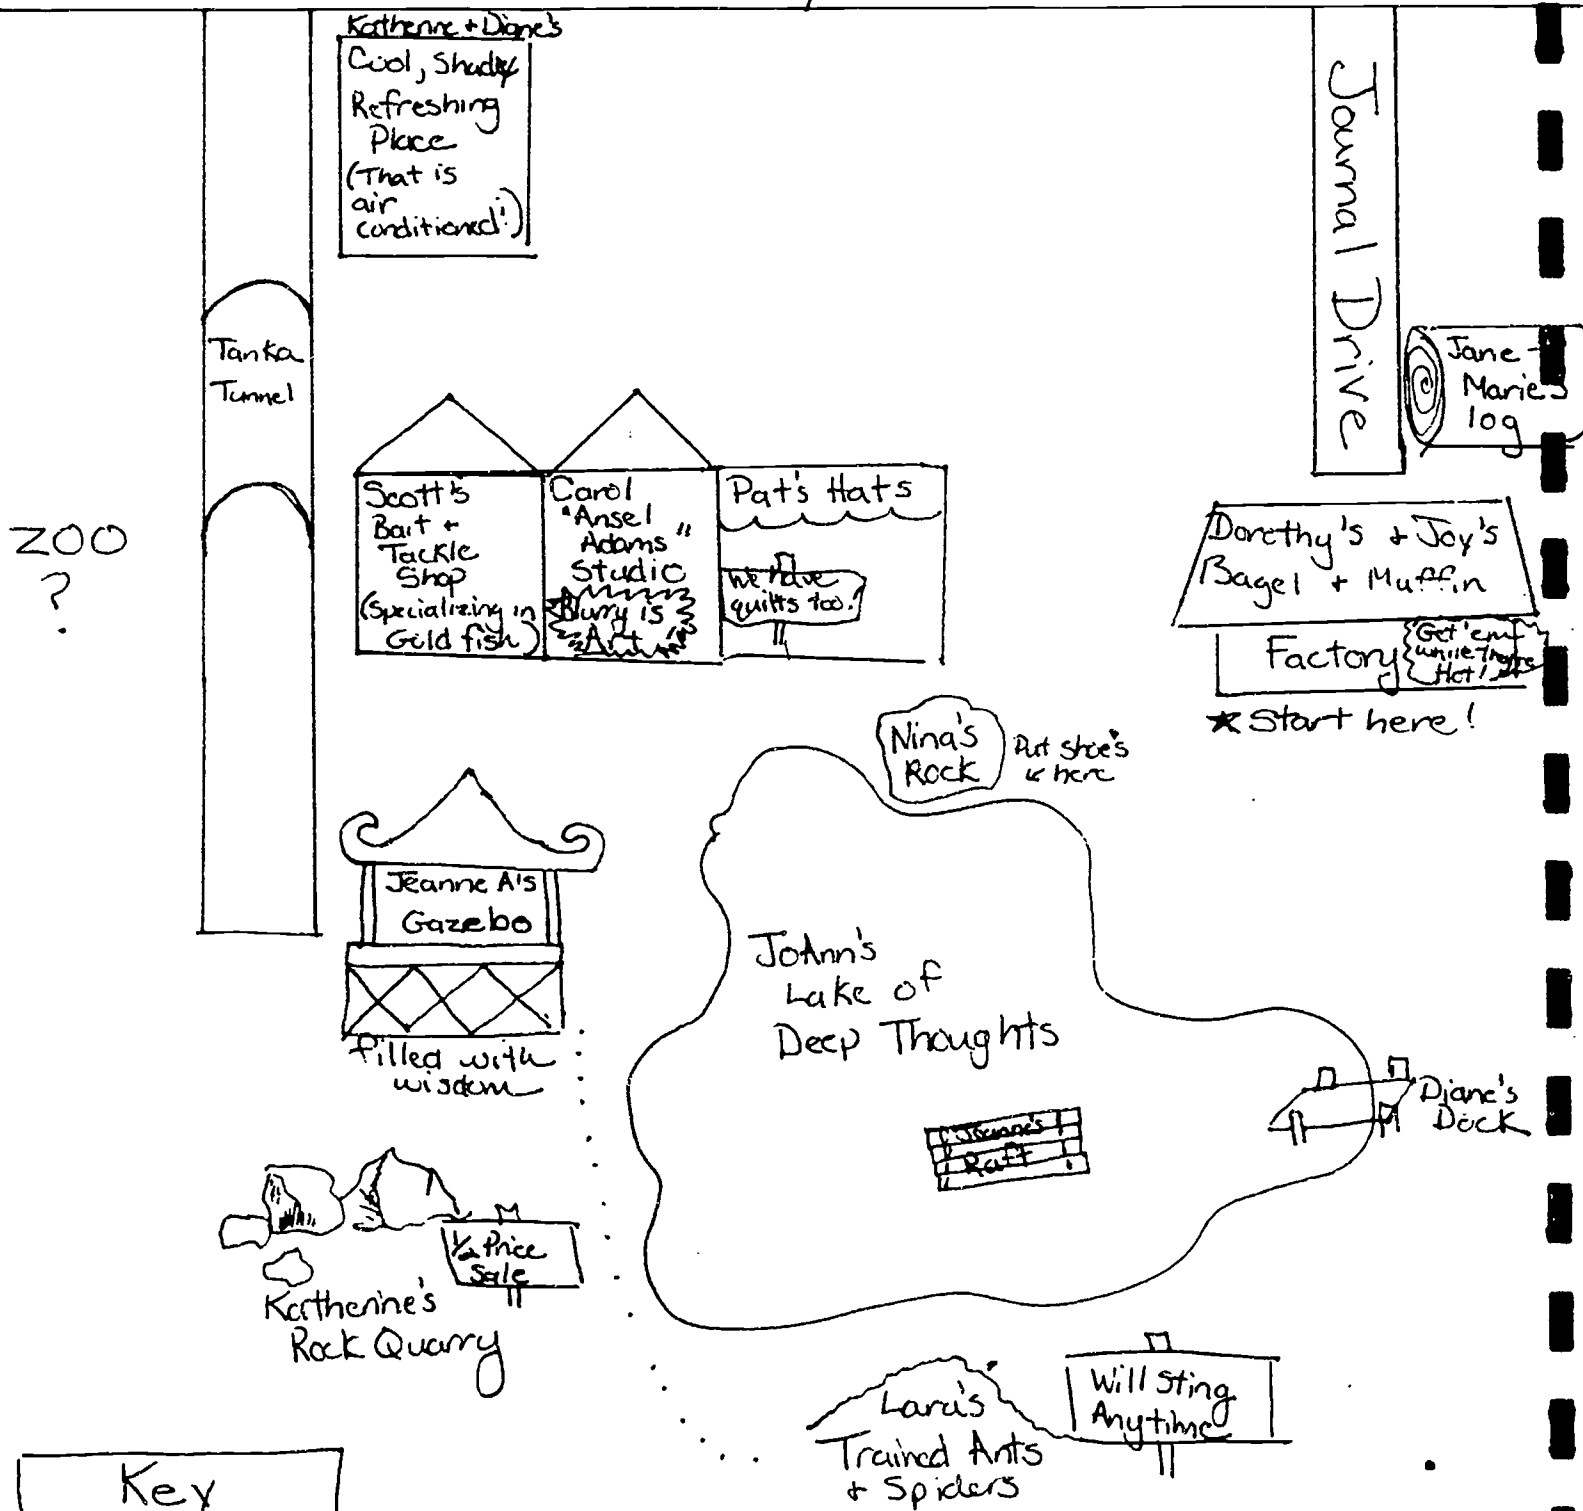 Katherine + Diane's
Cool, Shady
Refreshing
Place
(That is
air
conditioned!)
Journal Drive
Tanka
Tunnel
Jane-
Marie's
log
ZOO
?
Scott's
Bait +
Tackle
Shop
(Specializing in
Gold fish)
Carol
"Ansel
Adams"
Studio
Blurry is
Art
Pat's Hats
We have
quilts too!
Dorethy's & Joy's
Bagel + Muffin
Factory
Get 'em
while they're
Hot!
★ Start here!
Nina's
Rock
Put shoe's
↙ here
Jeanne A's
Gazebo
filled with
wisdom
JoAnn's
Lake of
Deep Thoughts
Joanne's
Raft
Diane's
Dock
1/2 Price
Sale
Katherine's
Rock Quarry
Lara's
Trained Ants
& Spiders
Will Sting
Anytime
Key